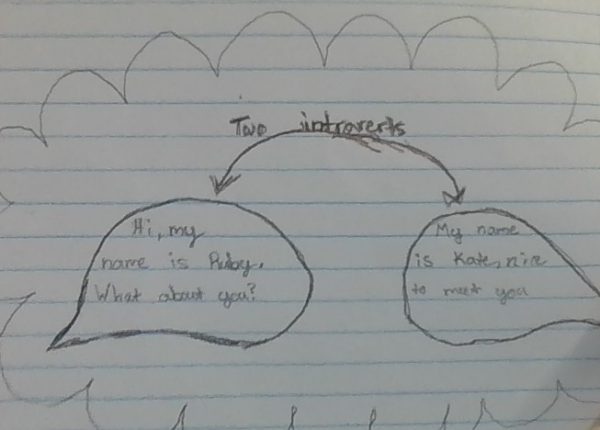 Two introverts
Hi, my
name is Ruby.
What about you?
My name
is Kate, nice
to meet you